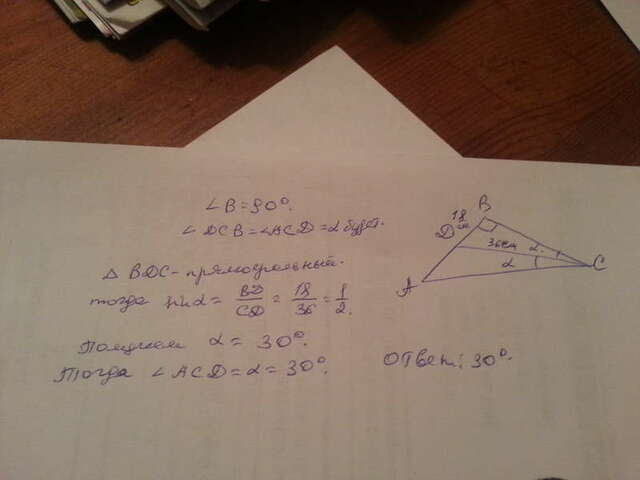 ∠B=90°.
∠DCB=∠ACD=α будет.
Δ BDC - прямоугольный.
тогда sin α = BD/CD = 18/36 = 1/2.
Получаем α = 30°.
Тогда ∠ACD=α=30°.
Ответ: 30°.
B
18 см
D
36см
α
α
A
C